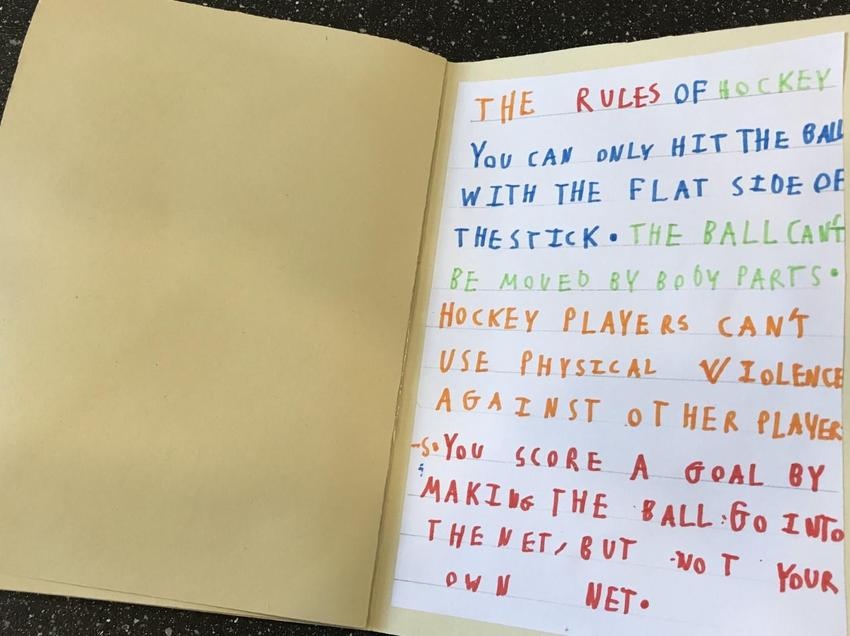 THE RULES OF HOCKEY
YOU CAN ONLY HIT THE BALL
WITH THE FLAT SIDE OF
THE STICK. THE BALL CAN'T
BE MOVED BY BODY PARTS.
HOCKEY PLAYERS CAN'T
USE PHYSICAL VIOLENCE
AGAINST OTHER PLAYER
-S. YOU SCORE A GOAL BY
MAKING THE BALL GO INTO
THE NET, BUT NOT YOUR
OWN NET.